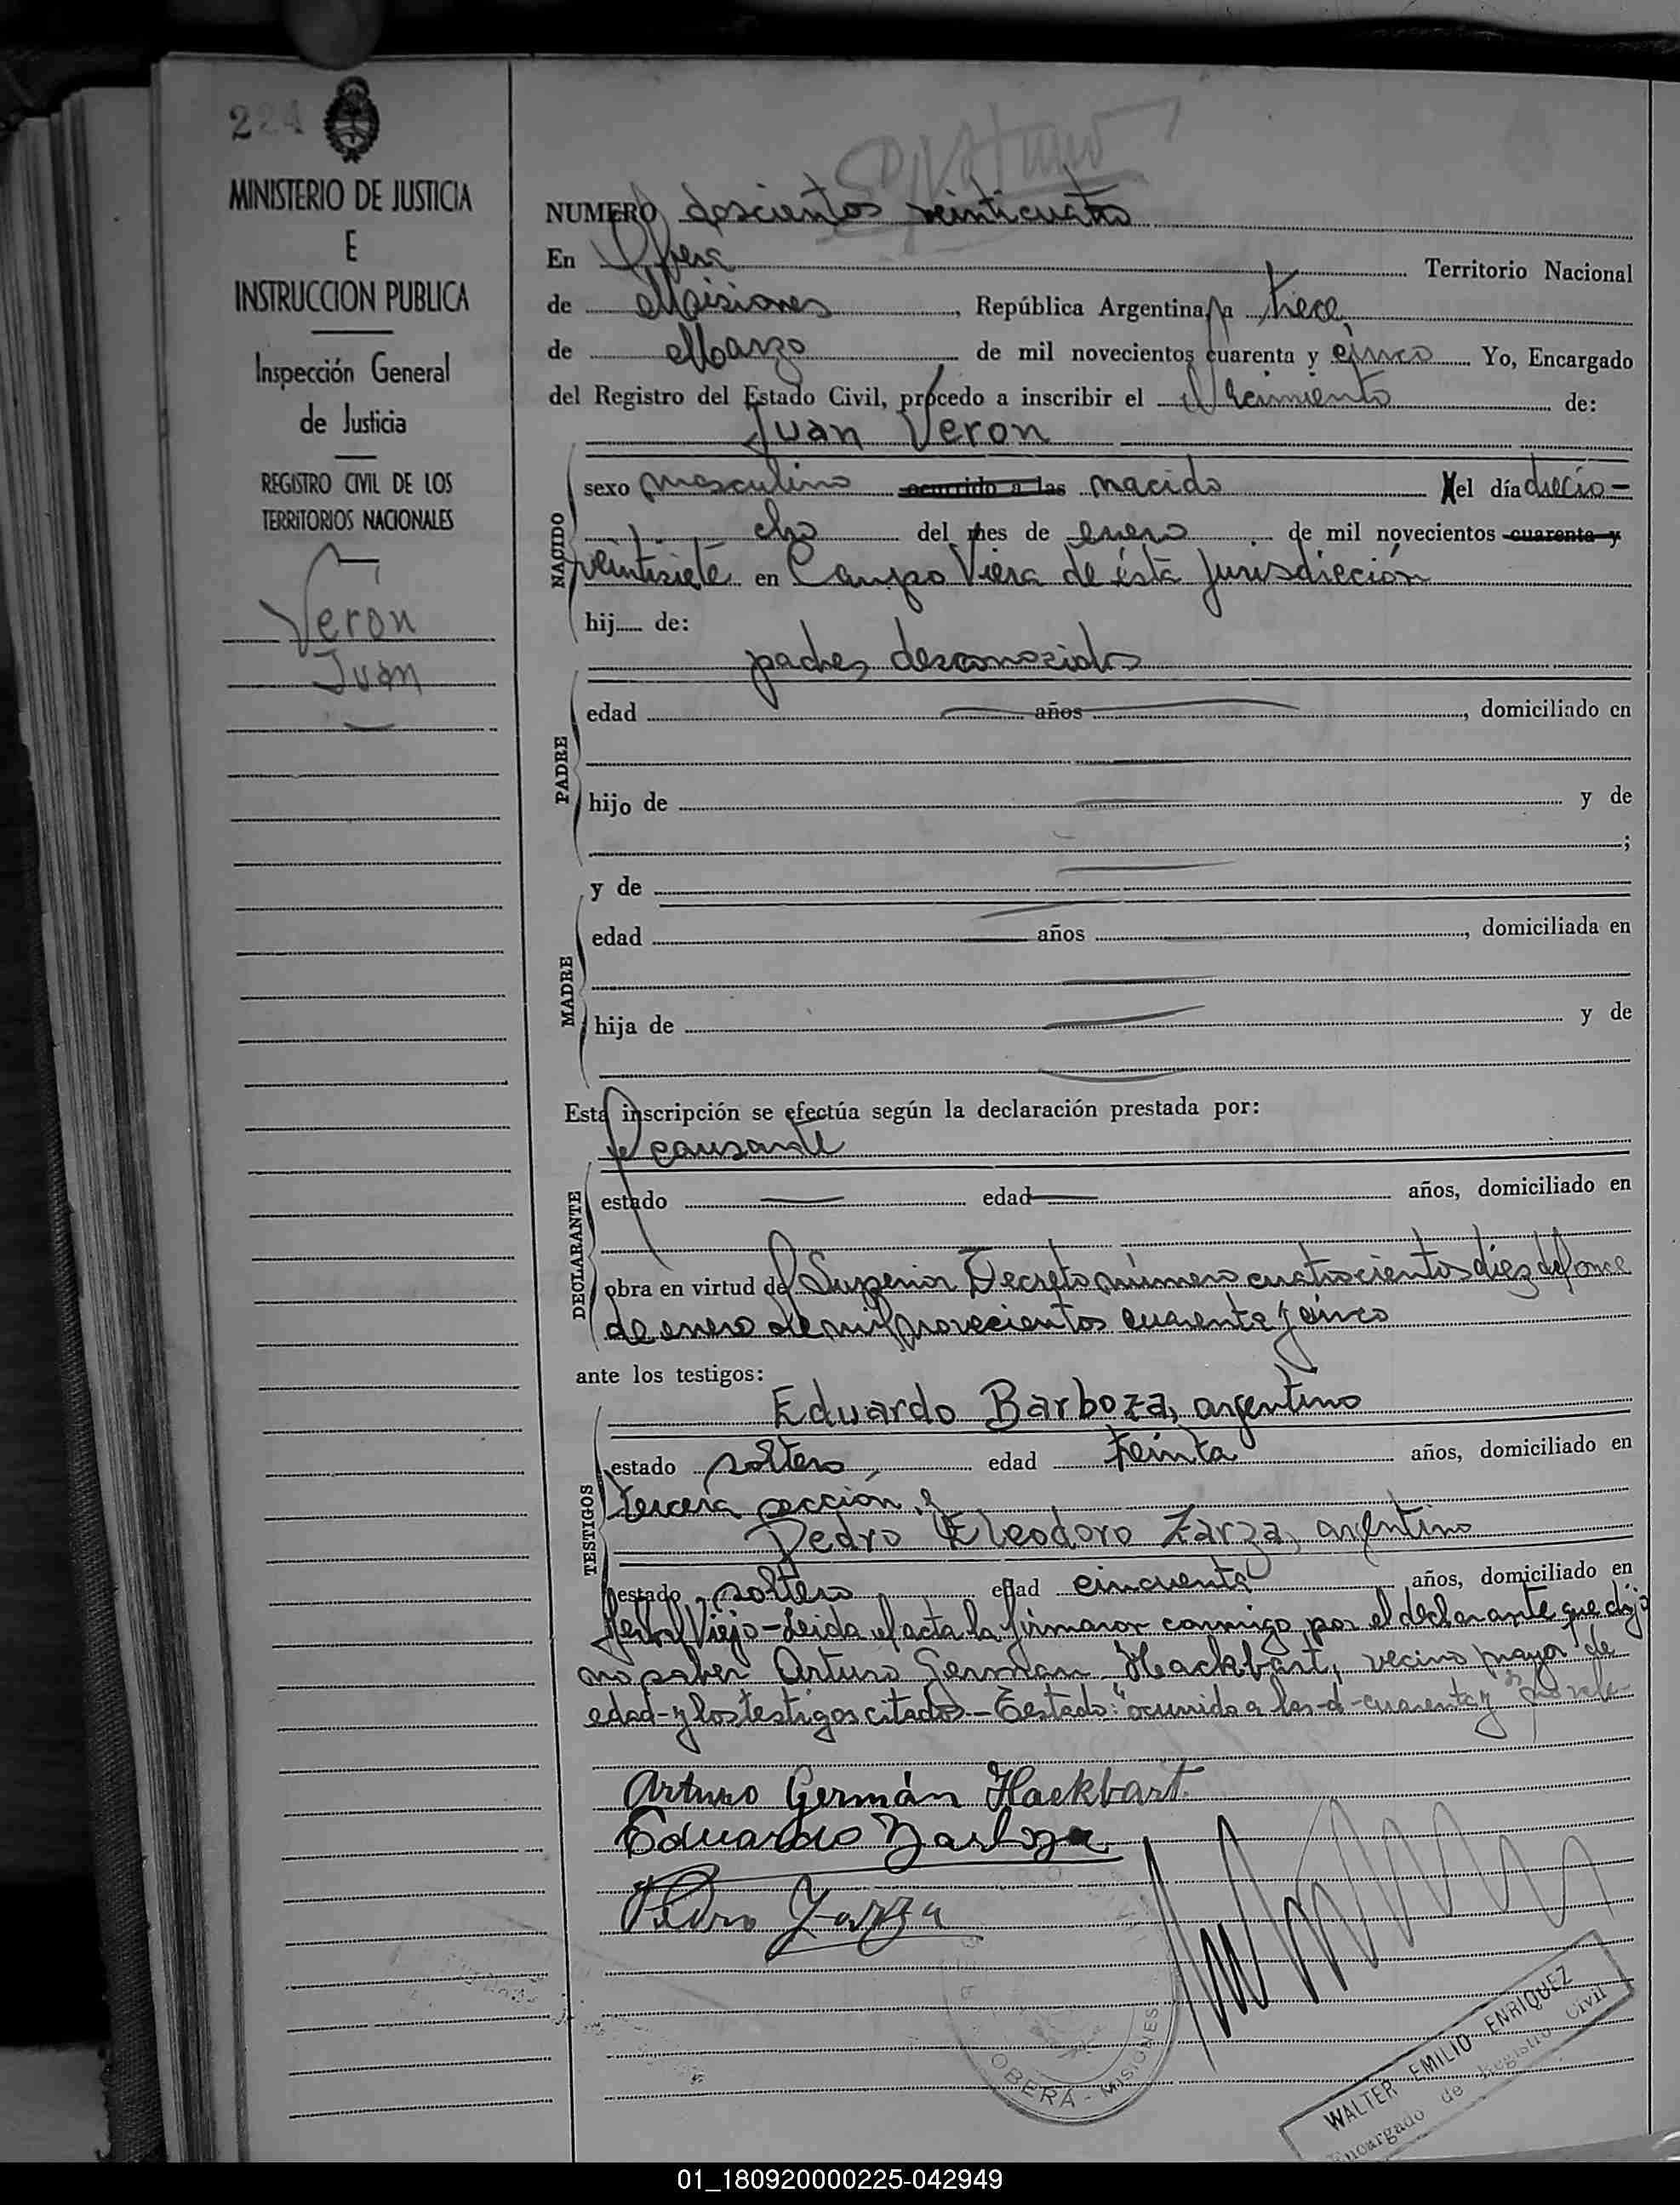 224
MINISTERIO DE JUSTICIA
E
INSTRUCCION PUBLICA
Inspección General
de Justicia
REGISTRO CIVIL DE LOS
TERRITORIOS NACIONALES
Veron
Juan
NUMERO doscientos veinticuatro
En Obera Territorio Nacional
de Misiones, República Argentina, a trece
de Marzo de mil novecientos cuarenta y cinco Yo, Encargado
del Registro del Estado Civil, procedo a inscribir el Nacimiento de:
Juan Veron
NACIDO
sexo masculino ocurrido a las nacido el día diecio-
cho del mes de enero de mil novecientos cuarenta y
veintisiete en Campo Viera de ésta Jurisdicción
hij de:
padres desconocidos
PADRE
edad años, domiciliado en
hijo de y de
;
y de
MADRE
edad años, domiciliada en
hija de y de
Esta inscripción se efectúa según la declaración prestada por:
el causante
DECLARANTE
estado edad años, domiciliado en
obra en virtud del Superior Decreto número cuatrocientos diez del once
de enero de mil novecientos cuarenta y cinco
ante los testigos:
TESTIGOS
Eduardo Barboza, argentino
estado soltero, edad treinta años, domiciliado en
tercera sección y
Pedro Eleodoro Zarza, argentino
estado soltero edad cincuenta años, domiciliado en
Yerbal Viejo - Leida el acta la firmaron conmigo, por el declarante que dijo
no saber Arturo German Hackbart, vecino mayor de
edad - y los testigos citados - Testado: "ocurrido a las - a - cuarenta y"
Arturo Germán Hackbart
Eduardo Barboza
Pedro Zarza
OBERA - MISIONES
WALTER EMILIO ENRIQUEZ
Encargado de Registro Civil
01_180920000225-042949